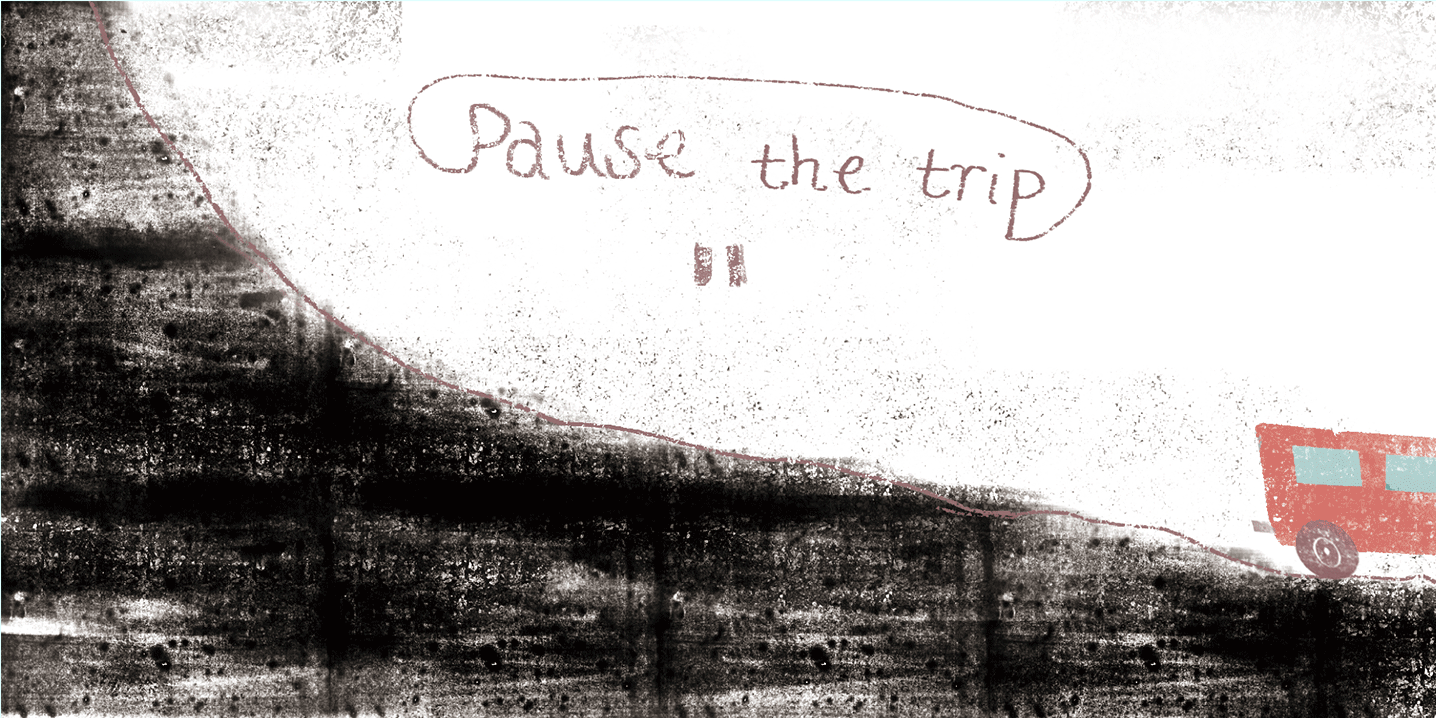 Pause the trip